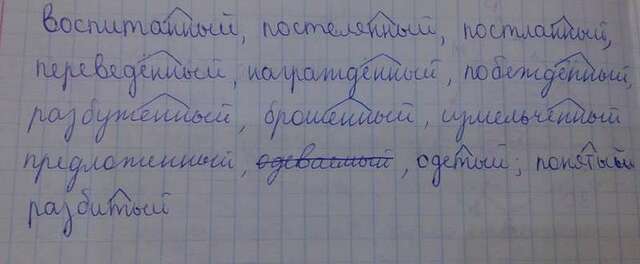 воспитанный, постелянный, постланный,
переведённый, награждённый, побеждённый,
разбуженный, брошенный, измельчённый
предложенный, одеваемый, одетый; понятый
разбитый